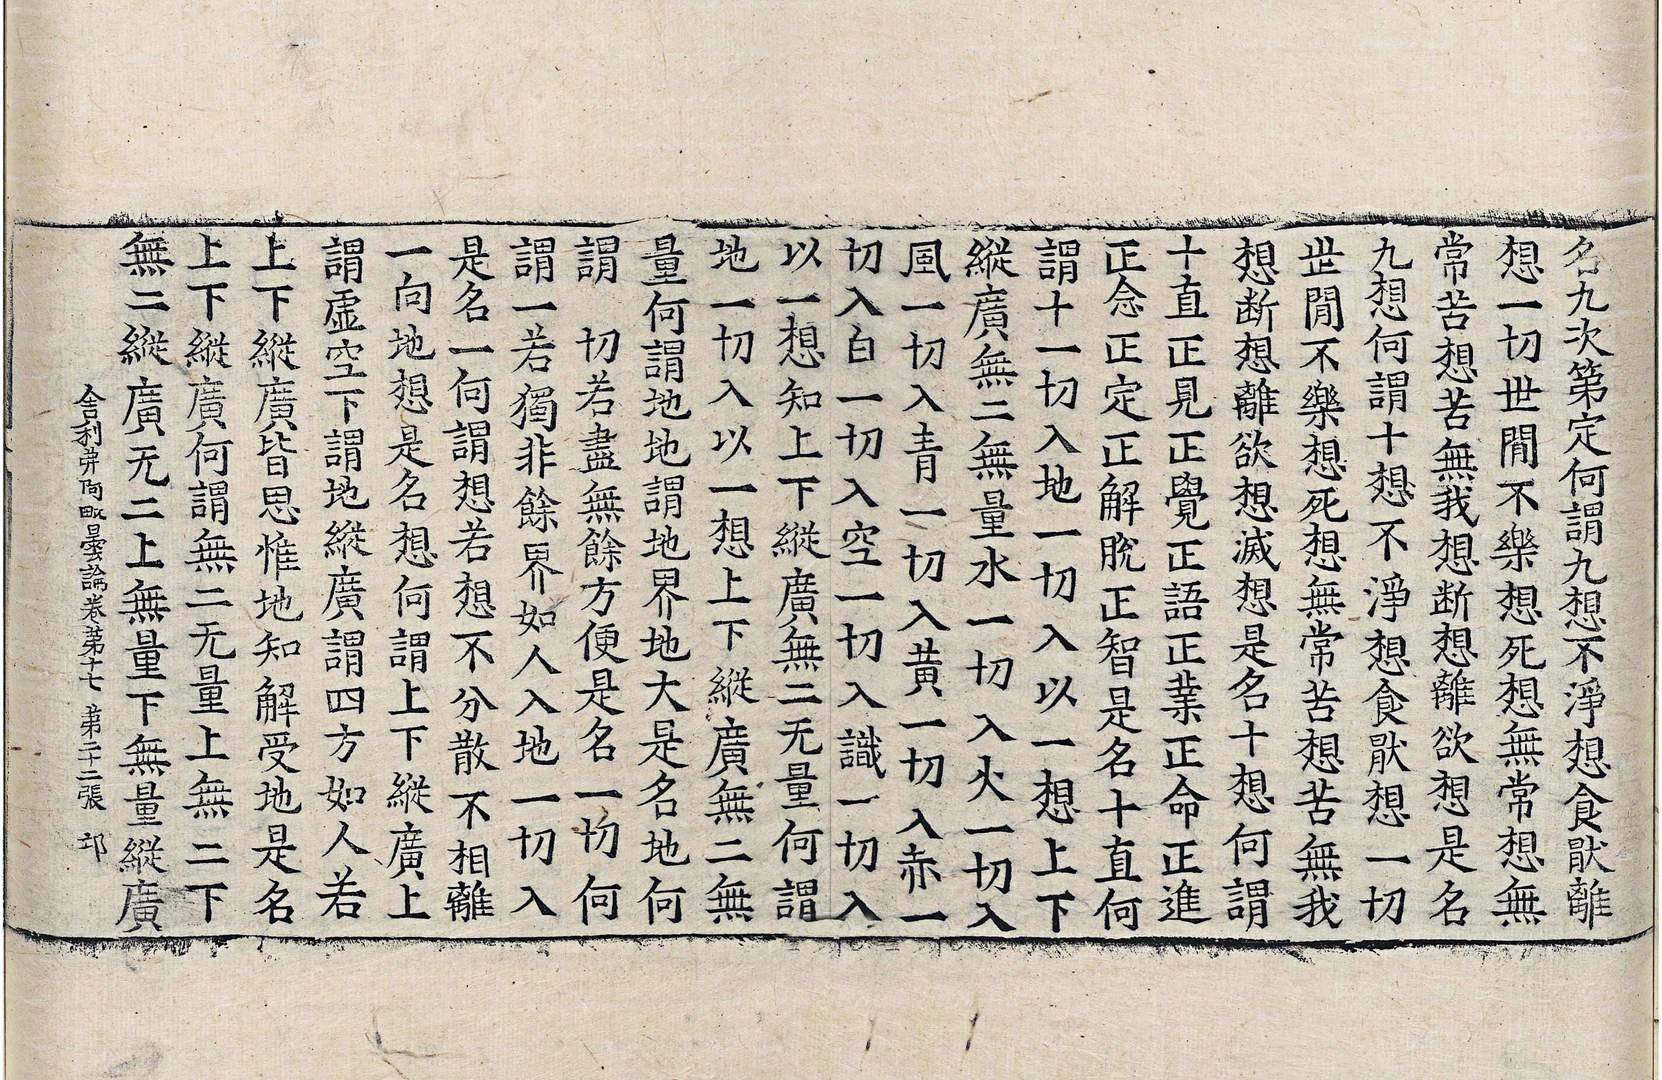 名九次第定何謂九想不淨想食猒離
想一切世閒不樂想死想無常想無
常苦想苦無我想断想離欲想是名
九想何謂十想不淨想食猒想一切
世閒不樂想死想無常苦想苦無我
想断想離欲想滅想是名十想何謂
十直正見正覺正語正業正命正進
正念正定正解脫正智是名十直何
謂十一切入地一切入以一想上下
縱廣無二無量水一切入火一切入
風一切入青一切入黄一切入赤一
切入白一切入空一切入識一切入
以一想知上下縱廣無二无量何謂
地一切入以一想上下縱廣無二無
量何謂地地謂地界地大是名地何
謂 切若盡無餘方便是名一切何
謂一若獨非餘界如人入地一切入
是名一何謂想若想不分散不相離
一向地想是名想何謂上下縱廣上
謂虛空下謂地縱廣謂四方如人若
上下縱廣皆思惟地知解受地是名
上下縱廣何謂無二无量上無二下
無二縱廣无二上無量下無量縱廣
舍利弗阿毗曇論卷第十七 第二十二張 邙